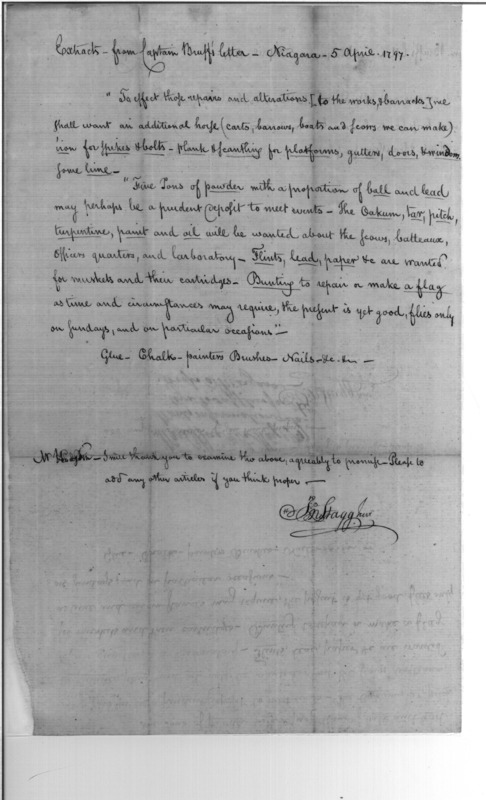 Extracts - from Captain Bruff's letter - Niagara - 5 April. 1797.
"To effect those repairs and alterations [to the works, & barracks] we
shall want an additional horse (carts, barrows, boats and scows we can make)
iron for spikes & bolts - plank & scantling for platforms, gutters, doors, & windows
some lime -
"Five Tons of powder with a proportion of ball and lead
may perhaps be a prudent deposit to meet events - The Oakum, tar, pitch,
turpentine, paint and oil will be wanted about the scows, batteaux,
officers quarters, and Larboratory - Flints, lead, paper &c are wanted
for muskets and their cartridges - Bunting to repair or make a flag
as time and circumstances may require, the present is yet good, flies only
on sundays, and on particular occasions" -
Glue - Chalk - painters Brushes - Nails - &c. &c -
Mr - I will thank you to examine the above, agreeably to promise - Please to
add any other articles if you think proper -
Jno Stagg Junr